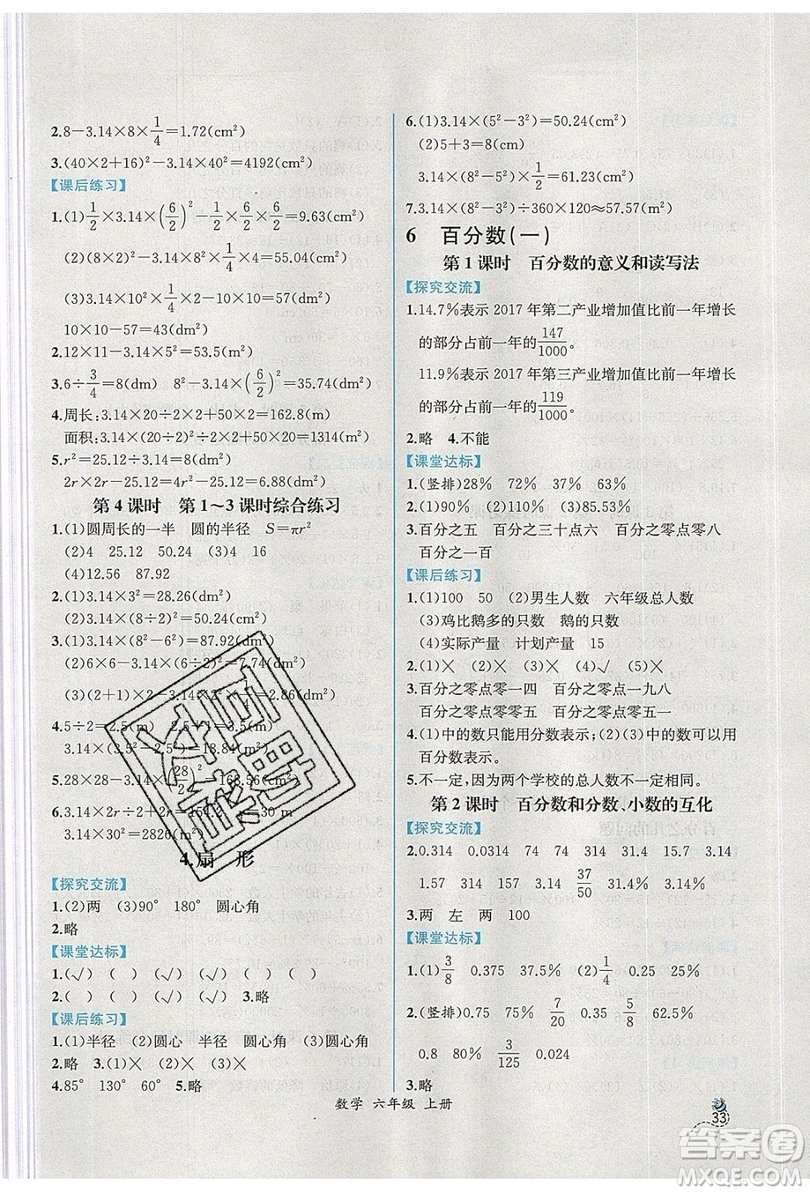 2.8-3.14×8×1/4=1.72(cm²)
3.(40×2+16)²-3.14×40²=4192(cm²)
【课后练习】
1.(1)1/2×3.14×(6/2)²-1/2×6×6/2×1/2=9.63(cm²)
(2)(8×2)×2+3.14×(8÷2)×2-2×1=55.04(cm)
(3)3.14×10×2×1/4+10×2=35.7(dm)
10×10-57=43(dm²)
2.12×11-3.14×(10÷2)²=53.5(m²)
3.6÷3/4=8(dm) 8²-3.14×(6/2)²=35.74(dm²)
4.周长:3.14×20÷2×2+50×2=162.8(m)
面积:3.14×(20÷2)²÷2×2+50×20=1314(m²)
5.r²=25.12÷3.14=8(cm²)
2r×2r-25.12=4×8-25.12=6.88(cm²)
第4课时 第1~3课时综合练习
1.(1)圆周长的一半 圆的半径 S=πr²
(2)4 25.12 50.24 (3)4 16
(4)12.56 87.92
2.(1)3.14×3²=28.26(cm²)
(2)3.14×(8÷2)²=50.24(cm²)
3.(1)3.14×8²-3.14×(8-2)²=87.92(m²)
(2)6×6-3.14×(6÷2)²=7.74(cm²)
4.5÷2=2.5(m)
3.14×(3.5²-2.5²)=
6.3.14×2r÷2+2r=
3.14×30²=2826(m²)
4.扇 形
【探究交流】
1.(2)两 (3)90° 180° 圆心角
2.略
【课堂达标】
1.(√) ( ) ( ) (√) (√) ( ) ( )
2.( ) (√) (√) (√) ( ) 3.略
【课后练习】
1.(1)半径 (2)圆心 半径 圆心角 (3)圆心角
2.略 3.(1)× (2)× (3)× (4)×
4.85° 130° 60° 5.略
6.(1)3.14×(5²-3²)=50.24(cm²)
(2)5+3=8(cm)
3.14×(8²-5²)×1/2=61.23(cm²)
7.3.14×(8²-3²)÷360×120≈57.57(cm²)
6 百分数(一)
第1课时 百分数的意义和读写法
【探究交流】
1.14.7%表示2017年第二产业增加值比前一年增长
的部分占前一年的147/1000。
11.9%表示2017年第三产业增加值比前一年增长
的部分占前一年的119/1000。
2.略 4.不能
【课堂达标】
1.(竖排)28% 72% 37% 63%
2.(1)90% (2)110% (3)85.53%
3.百分之五 百分之三十点六 百分之零点零八
百分之一百
【课后练习】
1.(1)100 50 (2)男生人数 六年级总人数
(3)鸡比鹅多的只数 鹅的只数
(4)实际产量 计划产量 15
2.(1)√ (2)× (3)× (4)√ (5)×
3.百分之零点零一四 百分之零点一九八
百分之零点零零五 百分之零点零五一
4.(1)中的数只能用分数表示;(2)(3)中的数可以用
百分数表示。
5.不一定,因为两个学校的总人数不一定相同。
第2课时 百分数和分数、小数的互化
【探究交流】
2.0.314 0.0314 74 314 31.4 15.7 3.14
1.57 314 157 31.4 37/50 31.4 0.314
3.两 左 两 100
【课堂达标】
1.(1)3/8 0.375 37.5% (2)1/4 0.25 25%
2.(竖排)0.75 75% 7/20 0.35 5/8 62.5%
0.8 80% 3/125 0.024
3.略
数学 六年级 上册
33
答案圈
MXQE.COM